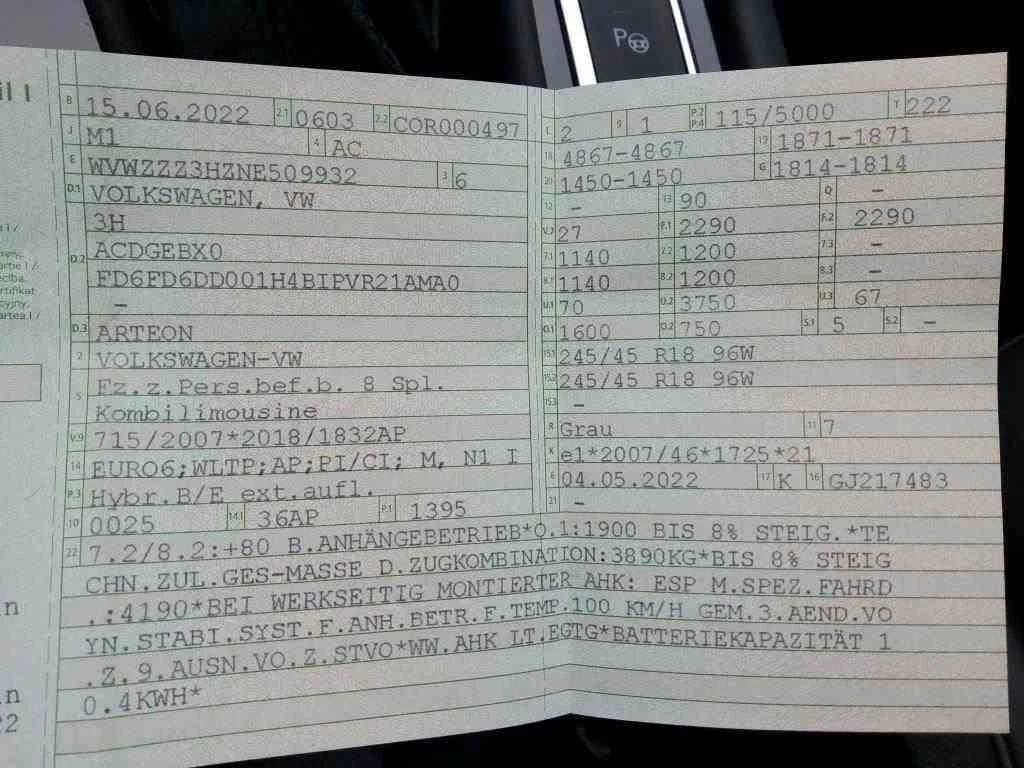 P
il I
B 15.06.2022 2.1 0603 2.2 COR000497
J M1 4 AC
E WVWZZZ3HZNE509932 3 6
D.1 VOLKSWAGEN, VW
3H
D.2 ACDGEBX0
FD6FD6DD001H4BIPVR21AMA0
–
D.3 ARTEON
2 VOLKSWAGEN-VW
5 Fz.z.Pers.bef.b. 8 Spl.
Kombilimousine
V.9 715/2007*2018/1832AP
14 EURO6;WLTP;AP;PI/CI; M, N1 I
P.3 Hybr.B/E ext.aufl.
10 0025 14.1 36AP P.1 1395
L 2 9 1 P.2 P.4 115/5000 T 222
18 4867-4867 19 1871-1871
20 1450-1450 G 1814-1814
12 – 13 90 Q –
V.7 27 F.1 2290 F.2 2290
7.1 1140 7.2 1200 7.3 –
8.1 1140 8.2 1200 8.3 –
U.1 70 U.2 3750 U.3 67
O.1 1600 O.2 750 S.1 5 S.2 –
15.1 245/45 R18 96W
15.2 245/45 R18 96W
15.3 –
R Grau 11 7
K e1*2007/46*1725*21
6 04.05.2022 17 K 16 GJ217483
21 –
22 7.2/8.2:+80 B.ANHÄNGEBETRIEB*O.1:1900 BIS 8% STEIG.*TE
CHN.ZUL.GES-MASSE D.ZUGKOMBINATION:3890KG*BIS 8% STEIG
.:4190*BEI WERKSEITIG MONTIERTER AHK: ESP M.SPEZ.FAHRD
YN.STABI.SYST.F.ANH.BETR.F.TEMP.100 KM/H GEM.3.AEND.VO
.Z.9.AUSN.VO.Z.STVO*WW.AHK LT.EGTG*BATTERIEKAPAZITÄT 1
0.4KWH*